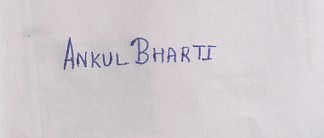 ANKUL BHARTI